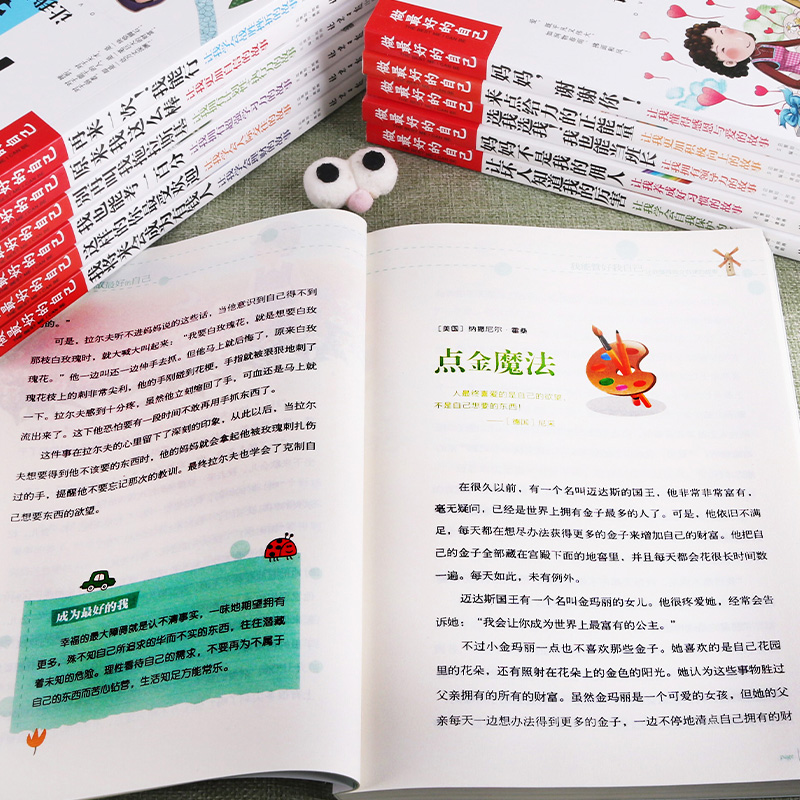 让我
再来一次，我能行
原来我这么棒
让我更加自信的故事
做最好的自己
做最好的自己
做最好的自己
做最好的自己
做最好的自己
妈妈，谢谢你！
来点给力的正能量
选我选我，我也能当班长
妈妈不是我的佣人
让坏人知道我的厉害
让我懂得感恩与爱的故事
让我更加积极向上的故事
让我拥有领导力的故事
让我养成好习惯的故事
让我学会自我保护
好的自己
最好的自己
最好的自己
做最好的自己
最好的自己
可是，拉尔夫听不进妈妈说的这些话，当他意识到自己得不到
那枝白玫瑰时，就大喊大叫起来：“我要白玫瑰花，就是想要白玫
瑰花。”他一边叫还一边伸手去抓。但他马上就后悔了，原来白玫
瑰花枝上的刺非常尖利，他的手刚碰到花梗，手指就被狠狠地刺了
一下。拉尔夫感到十分疼，虽然他立刻缩回了手，可血还是马上就
流出来了。这下他恐怕要有一段时间不敢再用手抓东西了。
这件事在拉尔夫的心里留下了深刻的印象，从此以后，当拉尔
夫想要得到他不该要的东西时，他的妈妈就会拿起他被玫瑰刺扎伤
过的手，提醒他不要忘记那次的教训。最终拉尔夫也学会了克制自
己想要东西的欲望。
成为最好的我
幸福的最大障碍就是认不清事实，一味地期望拥有
更多，殊不知自己所追求的华而不实的东西，往往潜藏
着未知的危险。理性看待自己的需求，不要再为不属于
自己的东西而苦心钻营，生活知足方能常乐。
［美国］纳撒尼尔·霍桑
点金魔法
人最终喜爱的是自己的欲望，
不是自己想要的东西！
——［德国］尼采
在很久以前，有一个名叫迈达斯的国王，他非常非常富有，
毫无疑问，已经是世界上拥有金子最多的人了。可是，他依旧不满
足，每天都在想尽办法获得更多的金子来增加自己的财富。他把自
己的金子全部藏在宫殿下面的地窖里，并且每天都会花很长时间数
一遍。每天如此，未有例外。
迈达斯国王有一个名叫金玛丽的女儿。他很疼爱她，经常会告
诉她：“我会让你成为世界上最富有的公主。”
不过小金玛丽一点也不喜欢那些金子。她喜欢的是自己花园
里的花朵，还有照射在花朵上的金色的阳光。她认为这些事物胜过
父亲拥有的所有的财富。虽然金玛丽是一个可爱的女孩，但她的父
亲每天一边想办法得到更多的金子，一边不停地清点自己拥有的财